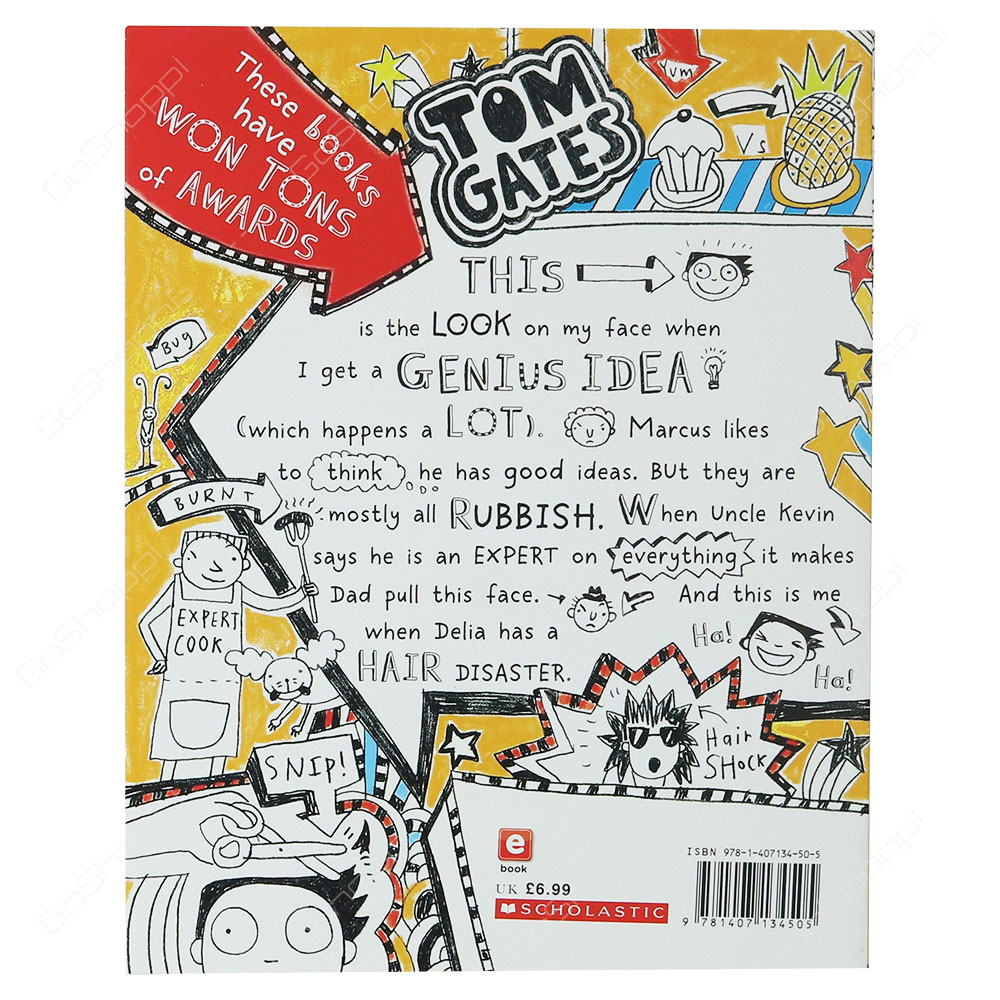 These books
have
WON TONS
of AWARDS
TOM
GATES
Yum
Vs
THIS
is the LOOK on my face when
I get a GENIUS IDEA
(which happens a LOT).
Marcus likes
to think he has good ideas. BUT they are
mostly all RUBBISH. When Uncle Kevin
says he is an EXPERT on everything it makes
Dad pull this face. And this is me
when Delia has a
HAIR DISASTER.
Ha!
Ha!
Bug
BURNT
EXPERT
COOK
SNIP!
Hair
SHOCK
e
book
UK £6.99
SCHOLASTIC
ISBN 978-1-407134-50-5
9 781407 134505
GoShoppi